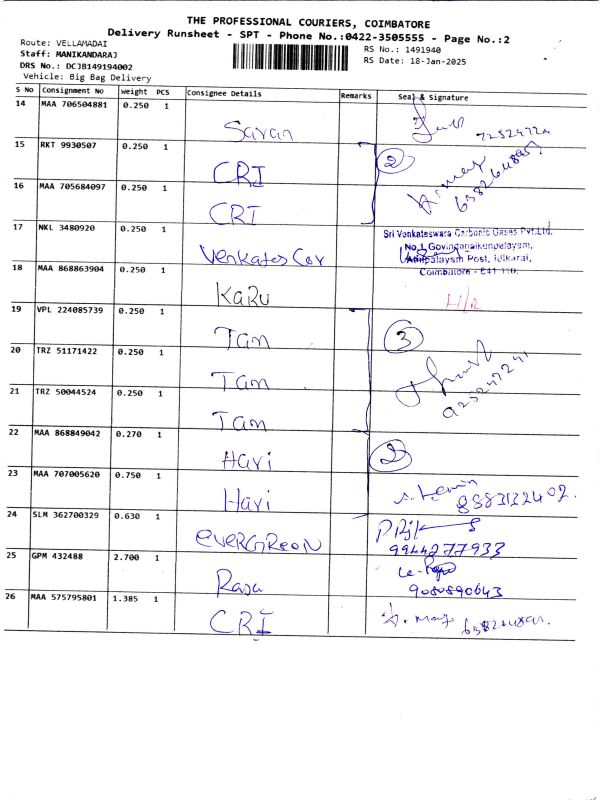 THE PROFESSIONAL COURIERS, COIMBATORE
Delivery Runsheet - SPT - Phone No.:0422-3505555 - Page No.:2
Route: VELLAMADAI
RS No.: 1491940
Staff: MANIKANDARAJ
RS Date: 18-Jan-2025
DRS No.: DCJB149194002
Vehicle: Big Bag Delivery
S No Consignment No Weight PCS Consignee Details Remarks Seal & Signature
14 MAA 706504881 0.250 1
Saran
15 RKT 9930507 0.250 1
CRI 2
16 MAA 705684097 0.250 1
CRI
17 NKL 3480920 0.250 1
Sri Venkateswara Carbonic Gases Pvt.Ltd.
No.1 Govindanaikenpalayam,
Venkates Car
Athipalayam Post, Idikarai,
Coimbatore - 641 110.
18 MAA 868863904 0.250 1
KaRu
19 VPL 224085739 0.250 1
Tan 3
20 TRZ 51171422 0.250 1
Tan
21 TRZ 50044524 0.250 1
925247241
Tan
22 MAA 868849042 0.270 1
Hari 2
23 MAA 707005620 0.750 1
Hari 8883132402.
24 SLM 362700329 0.630 1
EVERGREEN
9944277933
25 GPM 432488 2.700 1
Rasa 9080890643
26 MAA 575795801 1.385 1
CRI